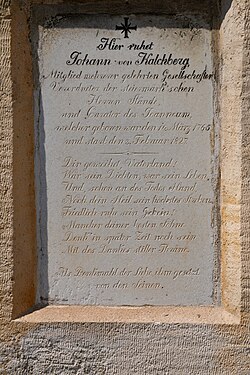 Hier ruhet
Johann von Kalchberg
Mitglied mehrerer gelehrten Gesellschaften
Verordneter der steiermärk'schen
Herren Stände,
und Curator des Joanneum,
welcher geboren ward den 15 März 1765
und starb den 3 Februar 1827
Dir geweihet, Vaterland!
War sein Dichten, war sein Leben,
Und, schon an des Todes
Noch dein Heil sein höchstes
Friedlich ruh sein Gebein!
Mancher deiner besten Söhne
Denk' in später Zeit noch sein
Mit des Dankes stiller Thräne.
Als Denkmahl der Liebe ihm gesetzt
von den Seinen.